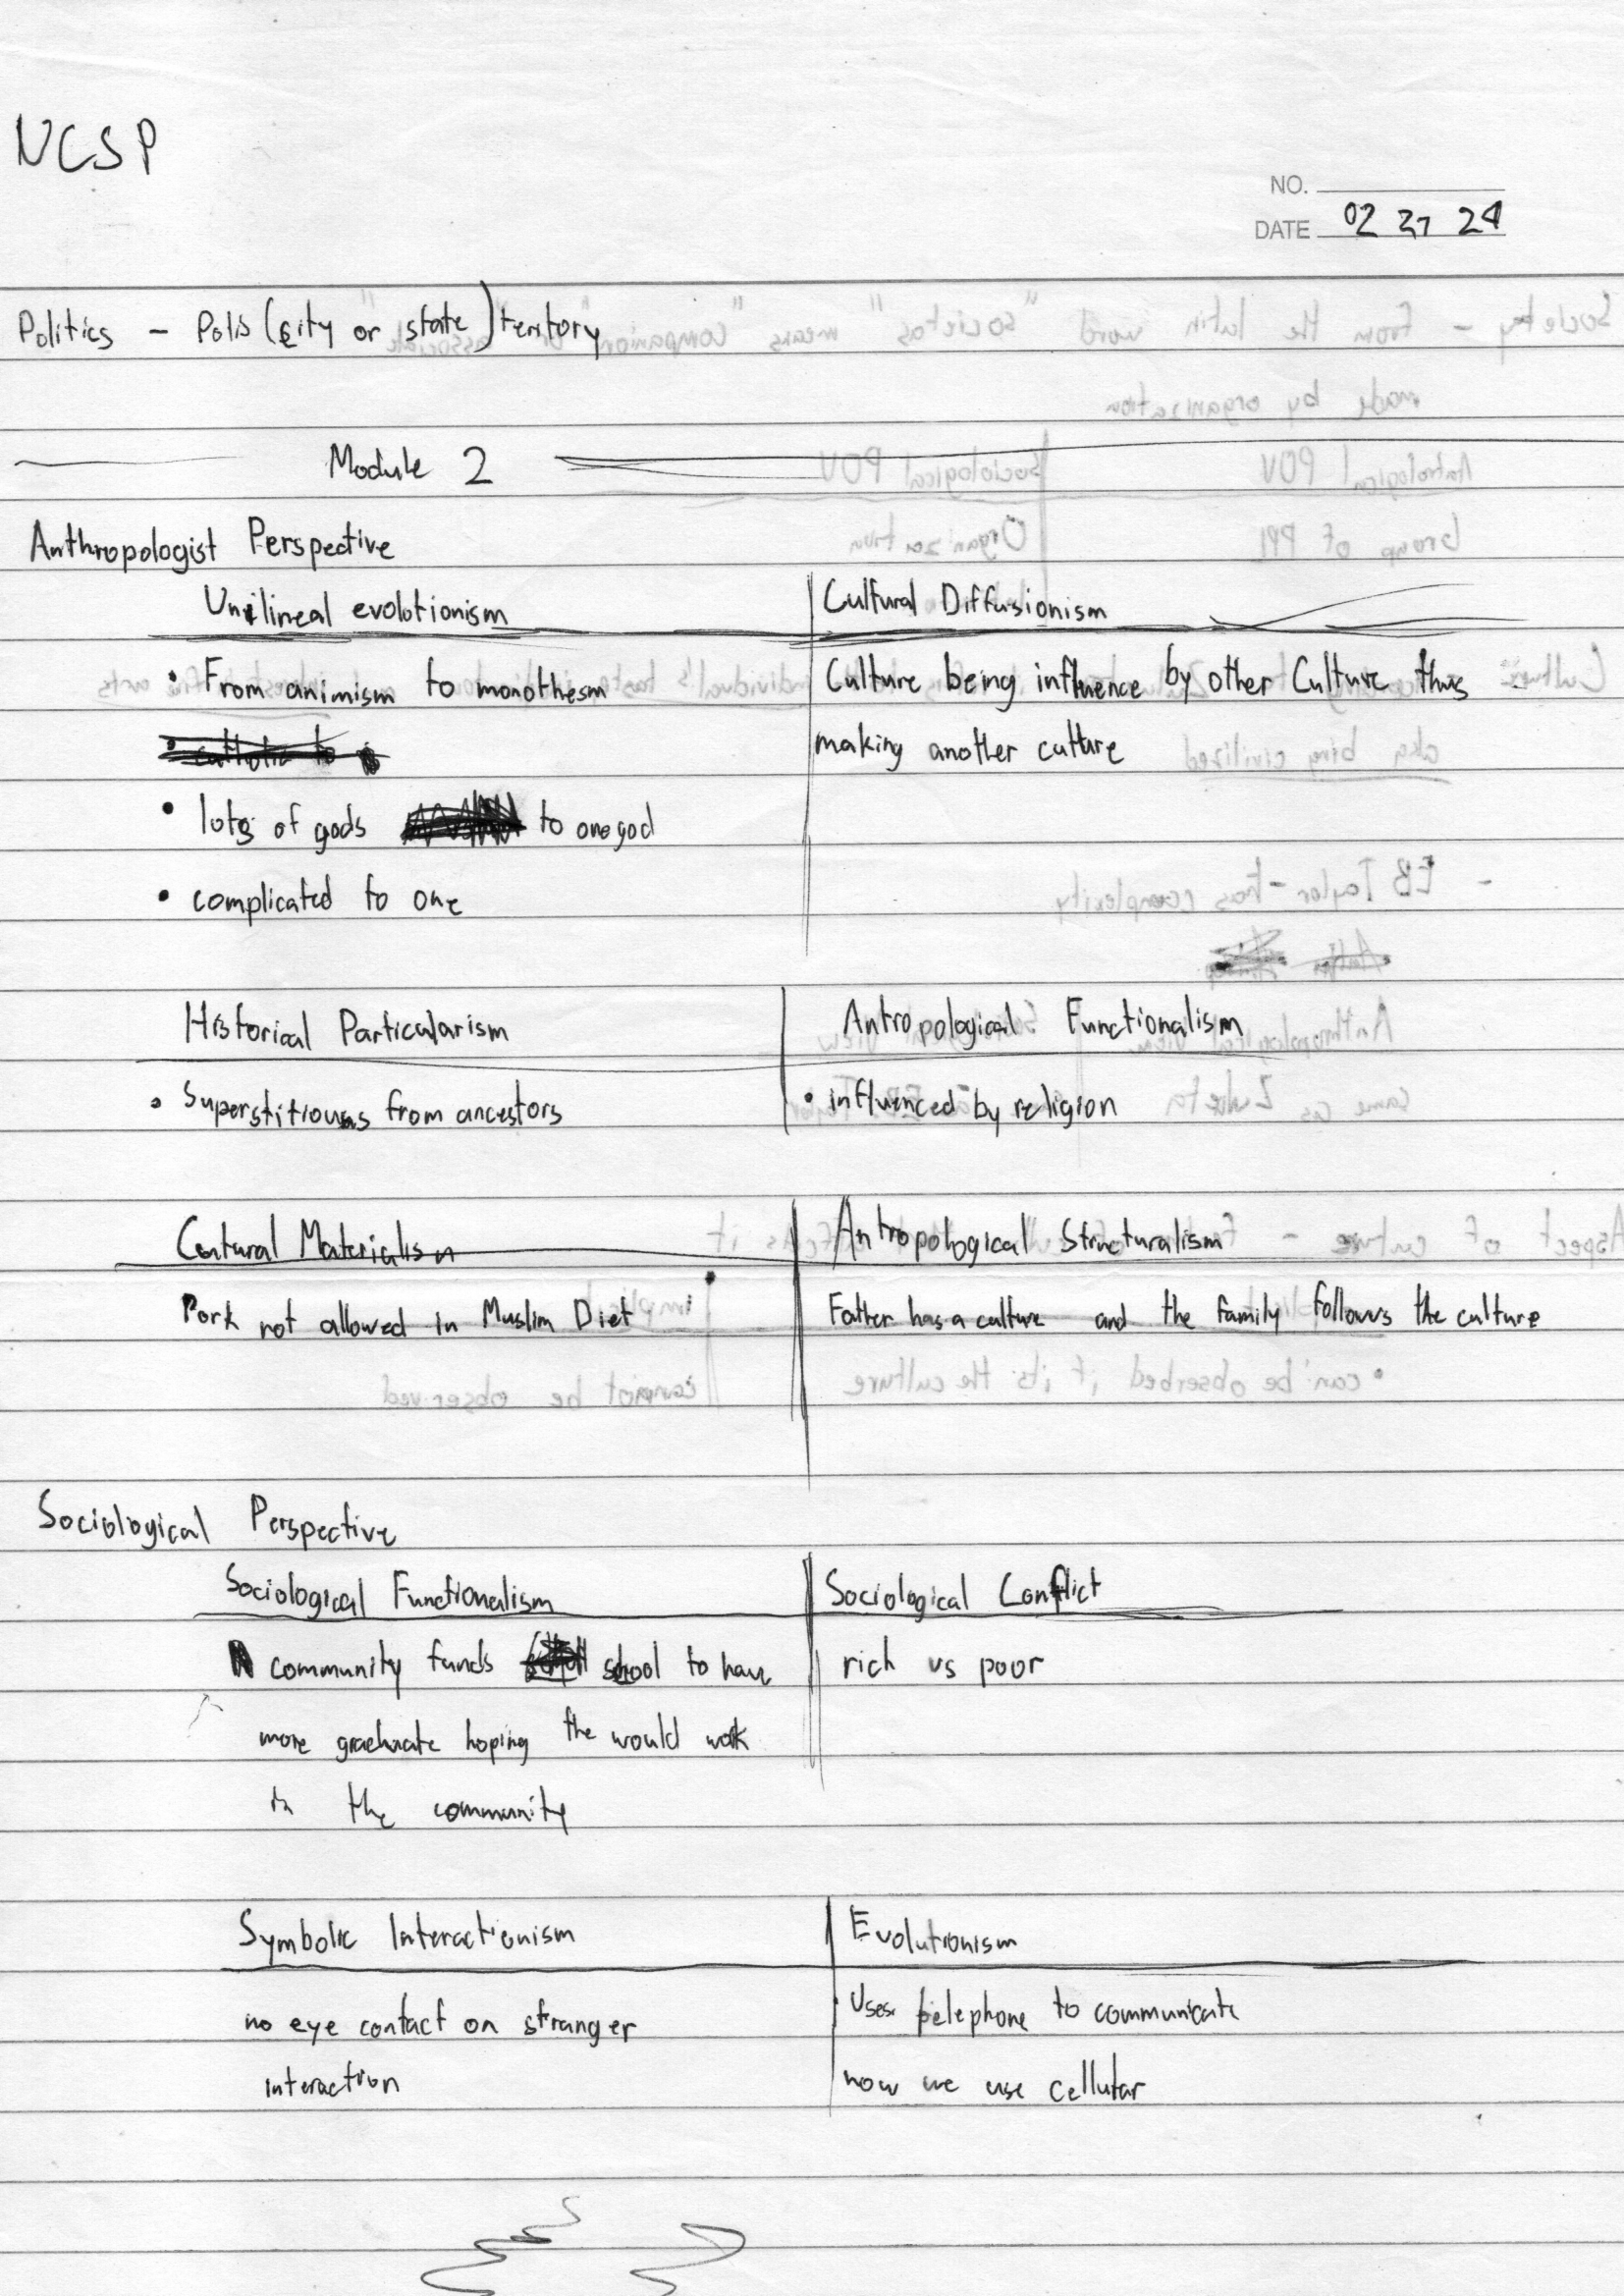 NCSP
NO.
DATE 02 27 24
Politics - Polis (city or state) territory
Module 2
Anthropologist Perspective
Unilineal evolotionism
Cultural Diffusionism
• From animism to monothesm
Culture being influence by other Culture thus
making another culture
• lots of gods to one god
• complicated to one
Historical Particularism
Antropological Functionalism
• Superstitiouns from ancestors
• influenced by religion
Cultural Materialism
Antropological Structuralism
Pork not allowed in Muslim Diet
Father has a culture and the family follows the culture
Sociological Perspective
Sociological Functionalism
Sociological Conflict
community funds school to have
rich vs poor
more graduate hoping the would work
in the community
Symbolic Interactionism
Evolutionism
no eye contact on stranger
• Uses telephone to communicate
interaction
now we use cellular